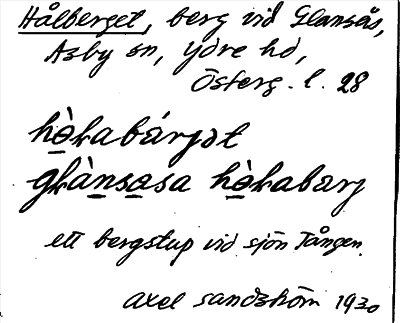 Hålberget, berg vid Glansås,
Asby sn, Ydre hd,
Österg. l. 28
hò̱kabárjət
glàṉsa̱sa hò̱kabærj
ett bergstup vid sjön Tången.
Axel Sandström 1930